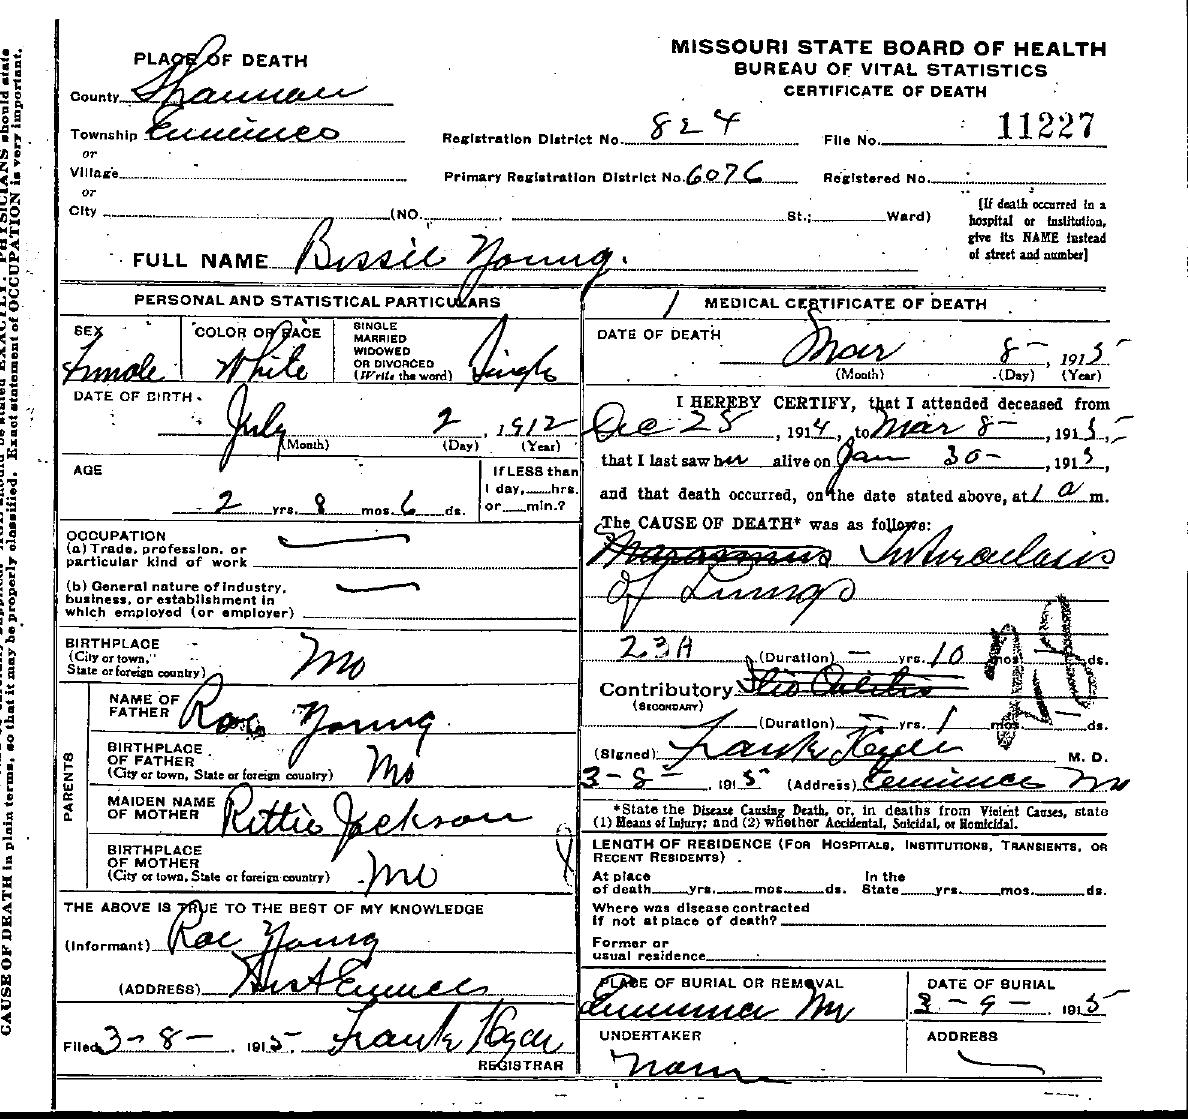 MISSOURI STATE BOARD OF HEALTH
BUREAU OF VITAL STATISTICS
CERTIFICATE OF DEATH
PLACE OF DEATH
County Shannon
Township Eminence
or
Village
or
City (NO. St.; Ward)
Registration District No. 824 File No. 11227
Primary Registration District No. 6076 Registered No.
[If death occurred in a
hospital or institution,
give its NAME instead
of street and number]
FULL NAME Bessie Young.
PERSONAL AND STATISTICAL PARTICULARS
SEX
Female
COLOR OR RACE
White
SINGLE
MARRIED
WIDOWED
OR DIVORCED
(Write the word) Single
DATE OF BIRTH
July 2, 1912
(Month) (Day) (Year)
AGE
2 yrs. 8 mos. 6 ds.
If LESS than
1 day, hrs.
or min.?
OCCUPATION
(a) Trade, profession, or
particular kind of work
(b) General nature of industry,
business, or establishment in
which employed (or employer)
BIRTHPLACE
(City or town,
State or foreign country) Mo
PARENTS
NAME OF
FATHER Roe Young.
BIRTHPLACE
OF FATHER
(City or town, State or foreign country) Mo
MAIDEN NAME
OF MOTHER Rittie Jackson
BIRTHPLACE
OF MOTHER
(City or town, State or foreign country) Mo
THE ABOVE IS TRUE TO THE BEST OF MY KNOWLEDGE
(Informant) Roe Young
(ADDRESS) West Eminence
Filed 3-8-, 1915. Frank Hyde
REGISTRAR
MEDICAL CERTIFICATE OF DEATH
DATE OF DEATH
Mar 8-, 1915
(Month) (Day) (Year)
I HEREBY CERTIFY, that I attended deceased from
Dec 25, 1914, to Mar 8-, 1915,
that I last saw her alive on Jan 30-, 1915,
and that death occurred, on the date stated above, at 1 a m.
The CAUSE OF DEATH* was as follows:
Marasmus Tuberculosis
of Lungs
23A (Duration) — yrs. 10 mos. ds.
Contributory Ilio Colitis
(SECONDARY)
(Duration) — yrs. 1 mos. — ds.
(Signed) Frank Hyde M. D.
3-8-, 1915 (Address) Eminence Mo
*State the Disease Causing Death, or, in deaths from Violent Causes, state
(1) Means of Injury; and (2) whether Accidental, Suicidal, or Homicidal.
LENGTH OF RESIDENCE (FOR HOSPITALS, INSTITUTIONS, TRANSIENTS, OR
RECENT RESIDENTS).
At place In the
of death yrs. mos. ds. State yrs. mos. ds.
Where was disease contracted
if not at place of death?
Former or
usual residence
PLACE OF BURIAL OR REMOVAL
Eminence Mo
DATE OF BURIAL
3-9-1915
UNDERTAKER
None
ADDRESS
CAUSE OF DEATH in plain terms, so that it may be properly classified. Exact statement of OCCUPATION is very important.